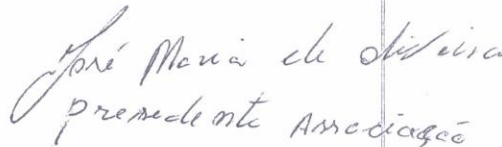 José Maria de Oliveira
presedente Associação